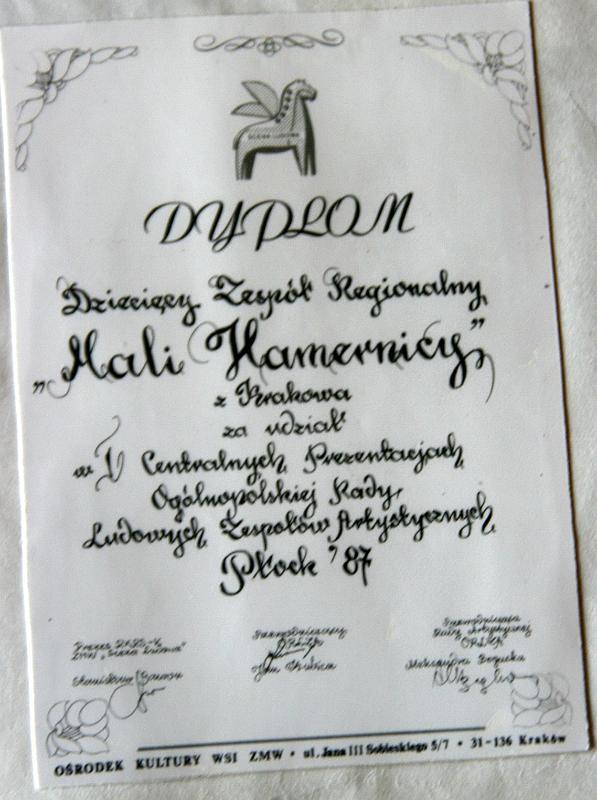 SCENA LUDOWA
DYPLOM
Dziecięcy Zespół Regionalny
„Mali Hamernicy”
z Krakowa
za udział
w V Centralnych Prezentacjach
Ogólnopolskiej Rady
Ludowych Zespołów Artystycznych
Płock '87
Prezes
ZMW „Scena Ludowa”
Przewodniczący
ORLZA
Jan
Przewodnicząca
Rady Artystycznej
ORLZA
Aleksandra Bogucka
OŚRODEK KULTURY WSI ZMW • ul. Jana III Sobieskiego 5/7 • 31-136 Kraków